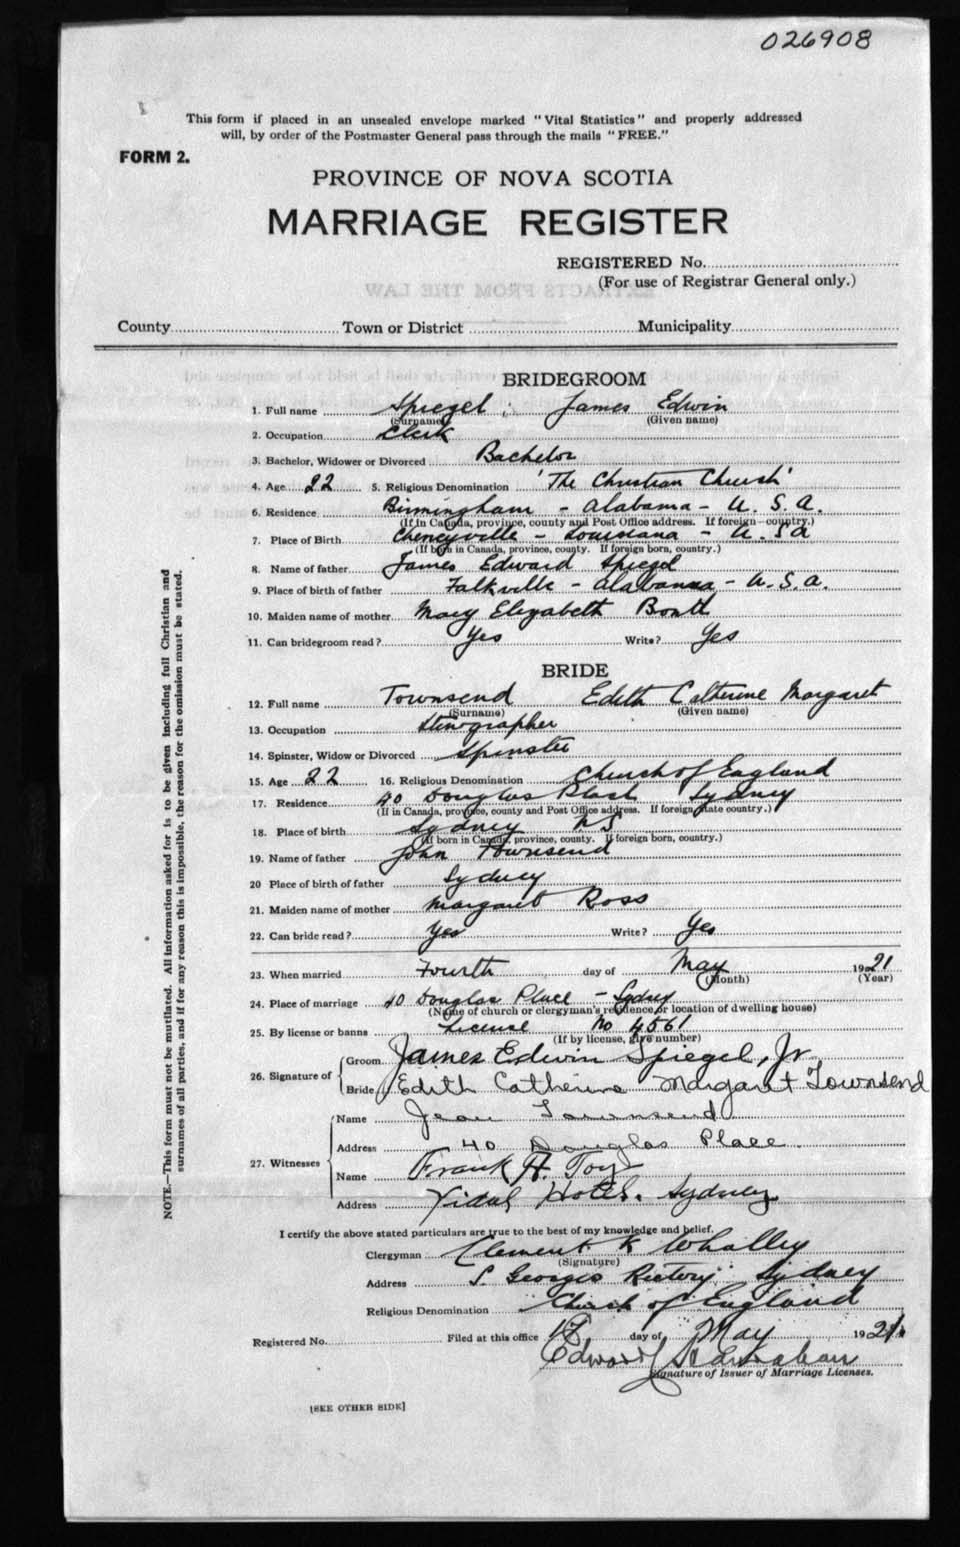 026908
This form if placed in an unsealed envelope marked "Vital Statistics" and properly addressed
will, by order of the Postmaster General pass through the mails "FREE."
FORM 2.
PROVINCE OF NOVA SCOTIA
MARRIAGE REGISTER
REGISTERED No.
(For use of Registrar General only.)
EXTRACTS FROM THE LAW
County Town or District Municipality
BRIDEGROOM
1. Full name Spiegel, James Edwin
(Surname) (Given name)
2. Occupation Clerk
3. Bachelor, Widower or Divorced Bachelor
4. Age 22 5. Religious Denomination 'The Christian Church'
6. Residence Birmingham - Alabama - U. S. A.
(If in Canada, province, county and Post Office address. If foreign—country.)
7. Place of Birth Cheneyville - Louisiana - U. S A
(If born in Canada, province, county. If foreign born, country.)
8. Name of father James Edward Spiegel
9. Place of birth of father Falkville - Alabama - U. S. A.
10. Maiden name of mother Mary Elizabeth
11. Can bridegroom read? Yes Write? Yes
BRIDE
12. Full name Townsend Edith Catherine Margaret
(Surname) (Given name)
13. Occupation Stenographer
14. Spinster, Widow or Divorced Spinster
15. Age 22 16. Religious Denomination Church of England
17. Residence 40 Douglas Place Sydney
(If in Canada, province, county and Post Office address. If foreign, state country.)
18. Place of birth Sydney NS
(If born in Canada, province, county. If foreign born, country.)
19. Name of father John Townsend
20 Place of birth of father Sydney
21. Maiden name of mother Margaret Ross
22. Can bride read? Yes Write? Yes
23. When married Fourth day of May 1921
(Month) (Year)
24. Place of marriage 40 Douglas Place - Sydney
(Name of church or clergyman's residence, or location of dwelling house)
25. By license or banns License No 4561
(If by license, give number)
26. Signature of Groom James Edwin Spiegel, Jr.
Bride Edith Catherine Margaret Townsend
27. Witnesses Name Jean Townsend
Address 40 Douglas Place.
Name Frank H. Toy
Address Vidal Hotel. Sydney
I certify the above stated particulars are true to the best of my knowledge and belief.
Clergyman Clement K Whalley
(Signature)
Address S Georges Rectory Sydney
Religious Denomination Church of England
Registered No. Filed at this office 18 day of May 1921
Edward
Signature of Issuer of Marriage Licenses.
[SEE OTHER SIDE]
NOTE.—This form must not be mutilated. All information asked for is to be given including full Christian and
surnames of all parties, and if for any reason this is impossible, the reason for the omission must be stated.